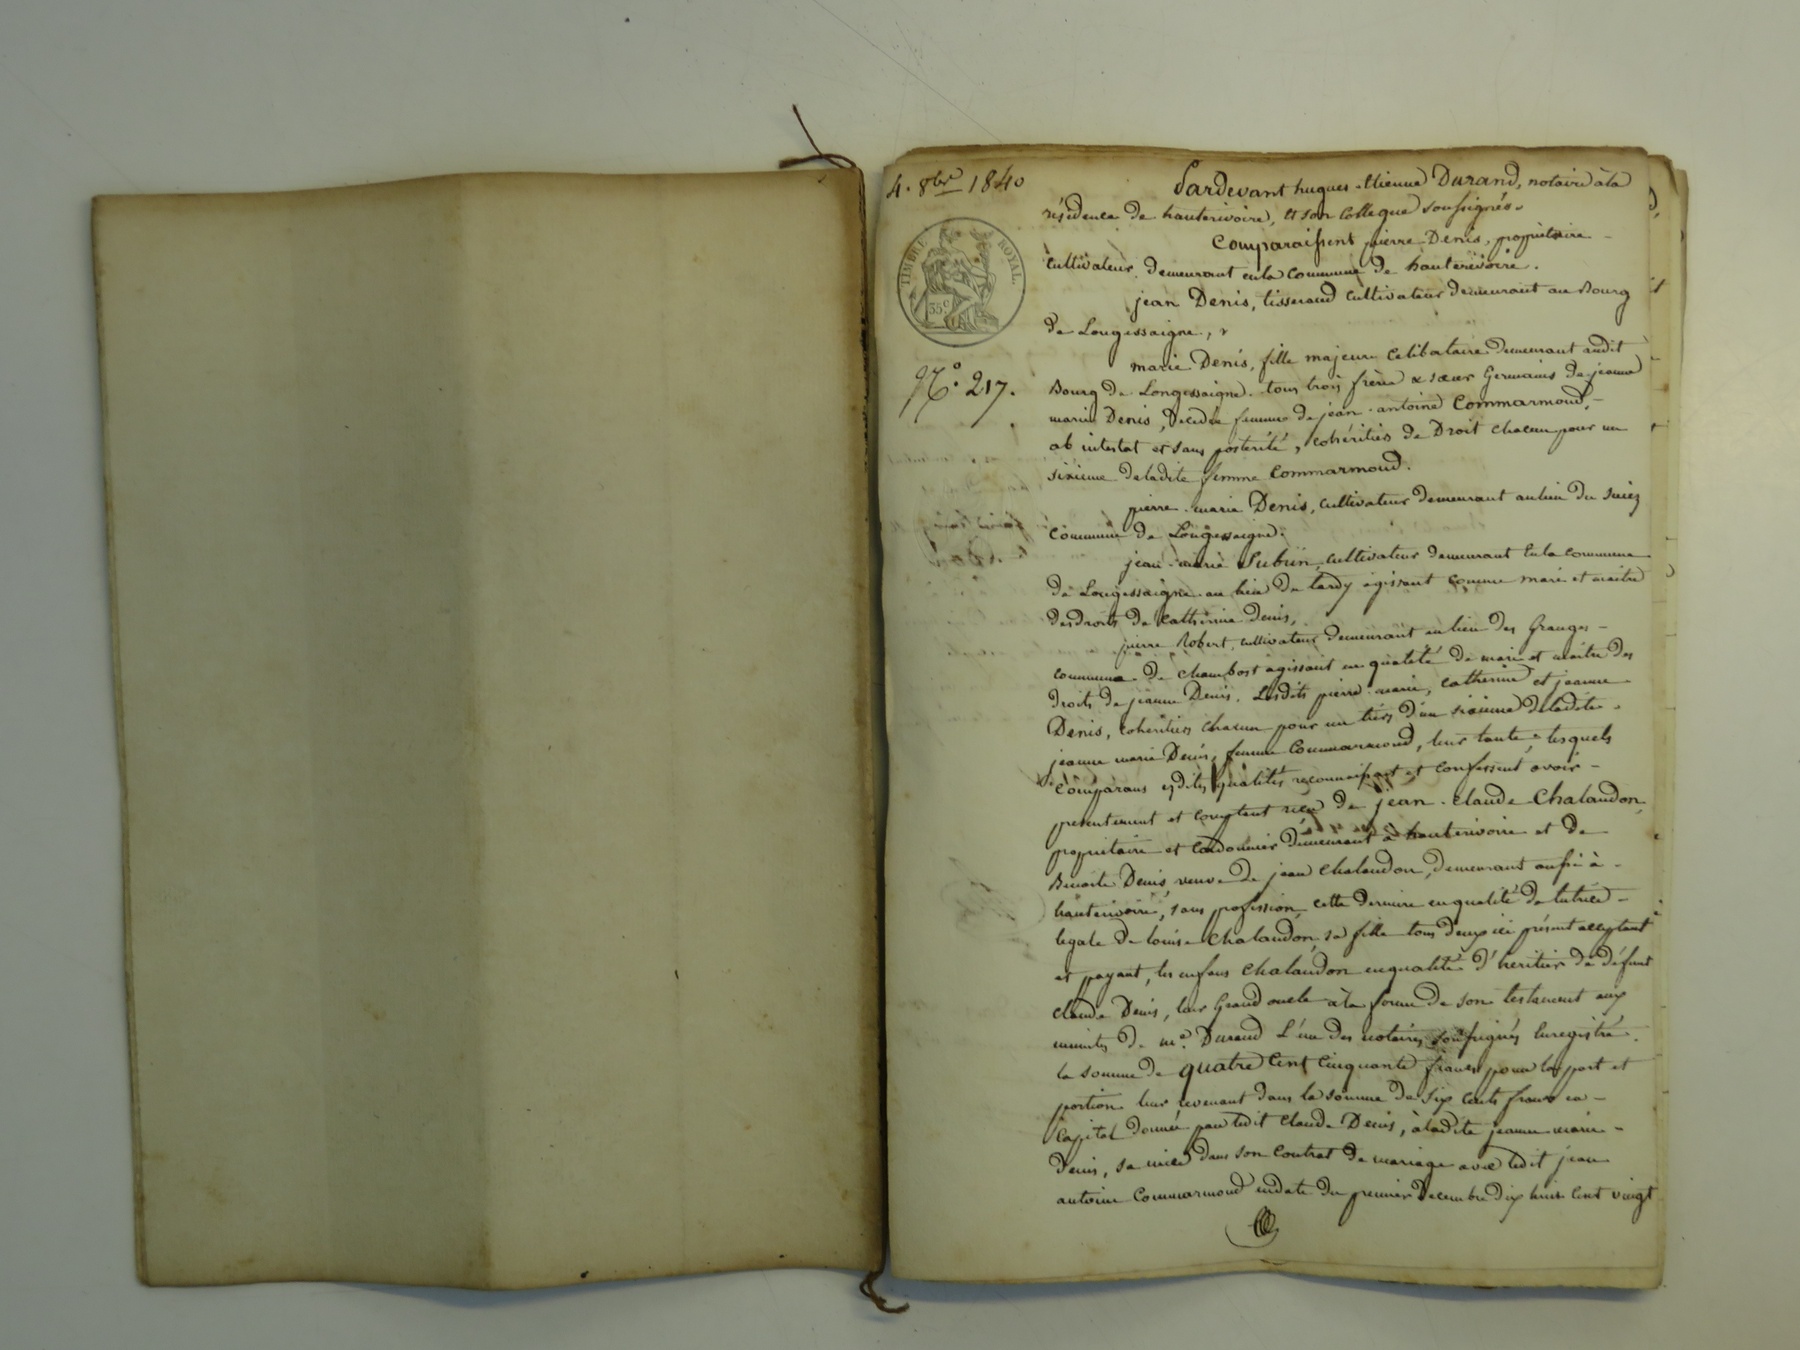 4. 8bre 1840
TIMBRE ROYAL
35 c
N° 217.
Pardevant hugues-Etienne Durand, notaire à la
résidence de hauterivoire, et son collegue soussignés.
Comparaissent pierre Denis, propriétaire
cultivateur demeurant en la commune de hauterivoire.
jean Denis, tisserand cultivateur demeurant au Bourg
de Longessaigne,
marie Denis, fille majeure celibataire demeurant audit
Bourg de Longessaigne. tous trois frère & sœur Germains de jeanne
marie Denis, décédée femme de jean-antoine Commarmond,
ab intestat et sans postérité, cohéritiers de Droit chacun pour un
sixieme de ladite femme Commarmond.
pierre-marie Denis, cultivateur demeurant au lieu du
commune de Longessaigne.
jean-marie Subrin, cultivateur demeurant en la commune
de Longessaigne au lieu du tardy agissant comme mari et maitre
des droits de catherine denis,
pierre Robert, cultivateur demeurant au lieu des Granges
commune de chambost agissant en qualité de mari et maitre des
droits de jeanne Denis. Lesdits pierre-marie, catherine et jeanne
Denis, cohéritiers chacun pour un tiers d'un sixieme de ladite
jeanne marie Denis, femme Commarmond, leur tante, lesquels
comparans esdites qualités reconnaissent et confessent avoir
presentement et comptant reçu de jean-claude Chalandon,
propriétaire et cordonnier demeurant à hauterivoire et de
Benoite Denis, veuve de jean Chalandon, demeurant aussi à
hauterivoire, sans profession, cette derniere en qualité de tutrice
legale de louise Chalandon, sa fille tous deux ici présent acceptant
et payant, les enfans chalandon en qualité d'heritier de défunt
claude Denis, leur Grand oncle à la forme de son testament aux
minutes de me. Durand L'un des notaires soussignés Enregistré.
la somme de quatre Cent cinquante francs pour les part et
portion leur revenant dans la somme de six cents francs en
capital donnée par ledit Claude Denis, à ladite jeanne marie
Denis, sa niece dans son Contrat de mariage avec ledit jean
antoine Commarmond en date du premier Decembre dix huit Cent vingt